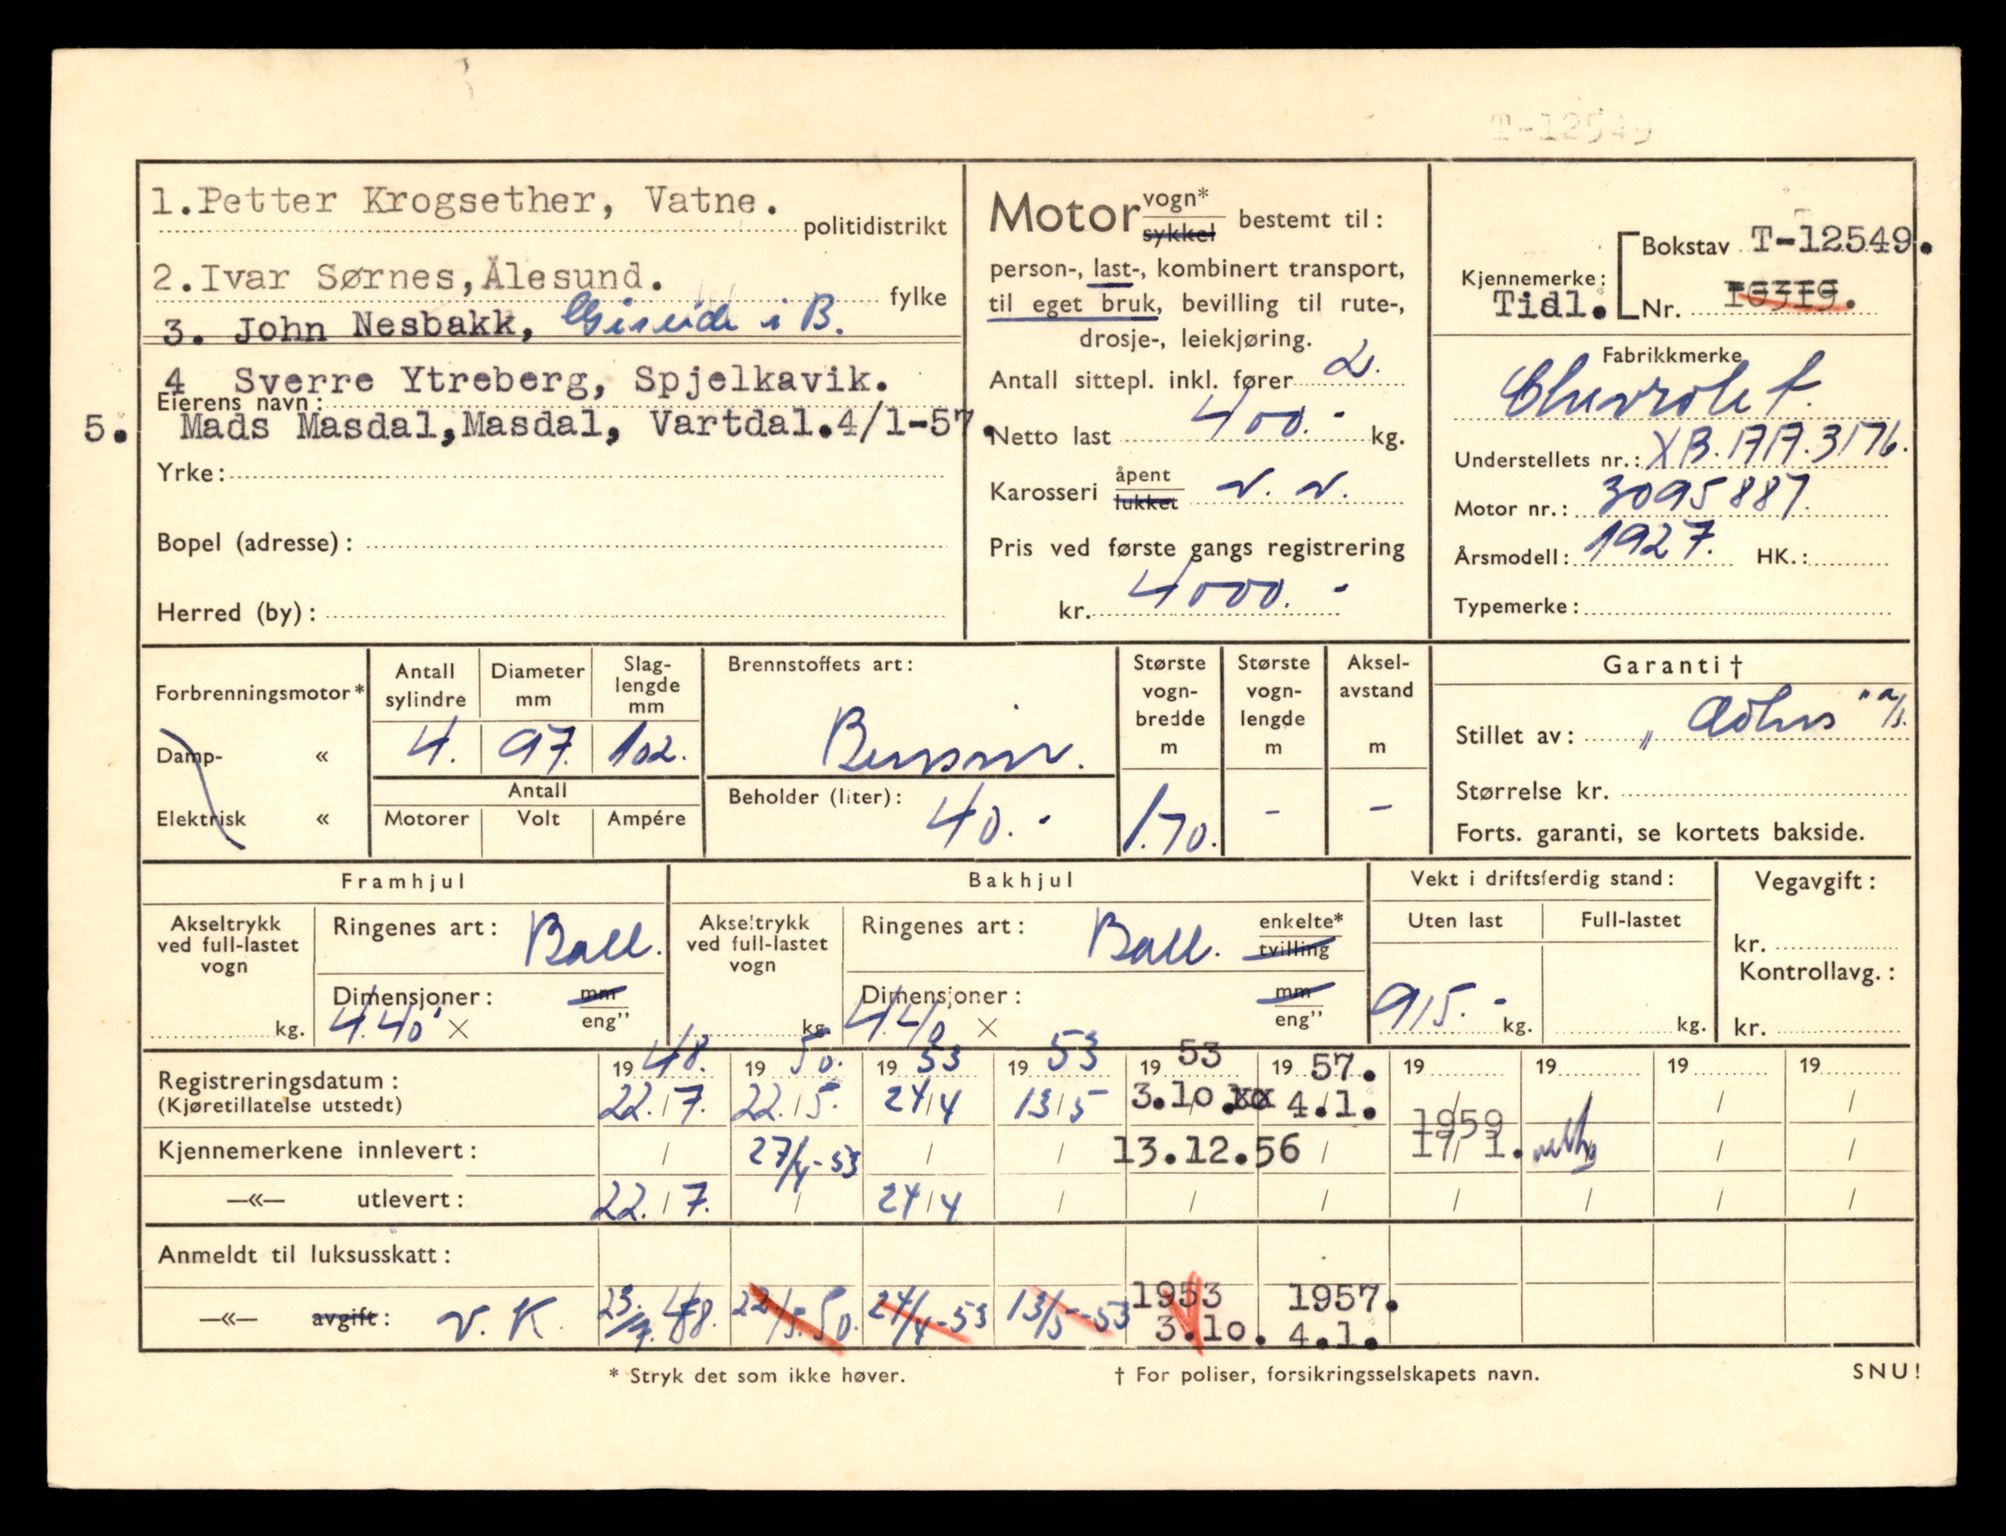 T-12549
1.Petter Krogsether, Vatne.
politidistrikt
2.Ivar Sørnes,Ålesund.
fylke
3. John Nesbakk, i B.
4 Sverre Ytreberg, Spjelkavik.
Eierens navn:
5. Mads Masdal,Masdal, Vartdal.4/1-57.
Yrke:
Bopel (adresse):
Herred (by):
Motor vogn* sykkel bestemt til:
person-, last-, kombinert transport,
til eget bruk, bevilling til rute-,
drosje-, leiekjøring.
Antall sittepl. inkl. fører 2.
Netto last 400.- kg.
Karosseri åpent lukket v. v.
Pris ved første gangs registrering
kr. 4000.-
Kjennemerke: Bokstav T-12549.
Tidl. Nr. 10319.
Fabrikkmerke
Chevrolet.
Understellets nr.: XB.1717.3176.
Motor nr.: 3095887.
Årsmodell: 1927. HK.:
Typemerke:
Forbrenningsmotor*
Damp- «
Elektrisk «
Antall sylindre
4.
Diameter mm
97.
Slag-lengde mm
102.
Antall
Motorer Volt Ampére
Brennstoffets art:
Bensin.
Beholder (liter): 40.-
Største vogn-bredde m
1.70.
Største vogn-lengde m
-
Aksel-avstand m
-
Garanti †
Stillet av: „ "a/s.
Størrelse kr.
Forts. garanti, se kortets bakside.
Framhjul
Akseltrykk ved full-lastet vogn
kg.
Ringenes art: Ball.
Dimensjoner: mm eng"
4.40" ×
Bakhjul
Akseltrykk ved full-lastet vogn
kg.
Ringenes art: Ball. enkelte* tvilling
Dimensjoner: mm eng"
4.40 ×
Vekt i driftsferdig stand:
Uten last Full-lastet
915.- kg. kg.
Vegavgift:
kr.
Kontrollavg.:
kr.
19 48. 19 50. 19 53 19 53 19 53 19 57. 19 19 19 19
Registreringsdatum:
(Kjøretillatelse utstedt)
22./7. 22./5. 24/4 13/5 3.10.xx 4.1. / / / /
1959
Kjennemerkene innlevert: / 27/4-53 / / 13.12.56 / 17/1. / /
—«— utlevert: 22./7. / 24/4 / / / / / / /
Anmeldt til luksusskatt:
—«— avgift: v. K. 23. 48. 22/5.50. 24/4-53 13/5-53 1953 3.10. 1957. 4.1.
* Stryk det som ikke høver.
† For poliser, forsikringsselskapets navn.
SNU!